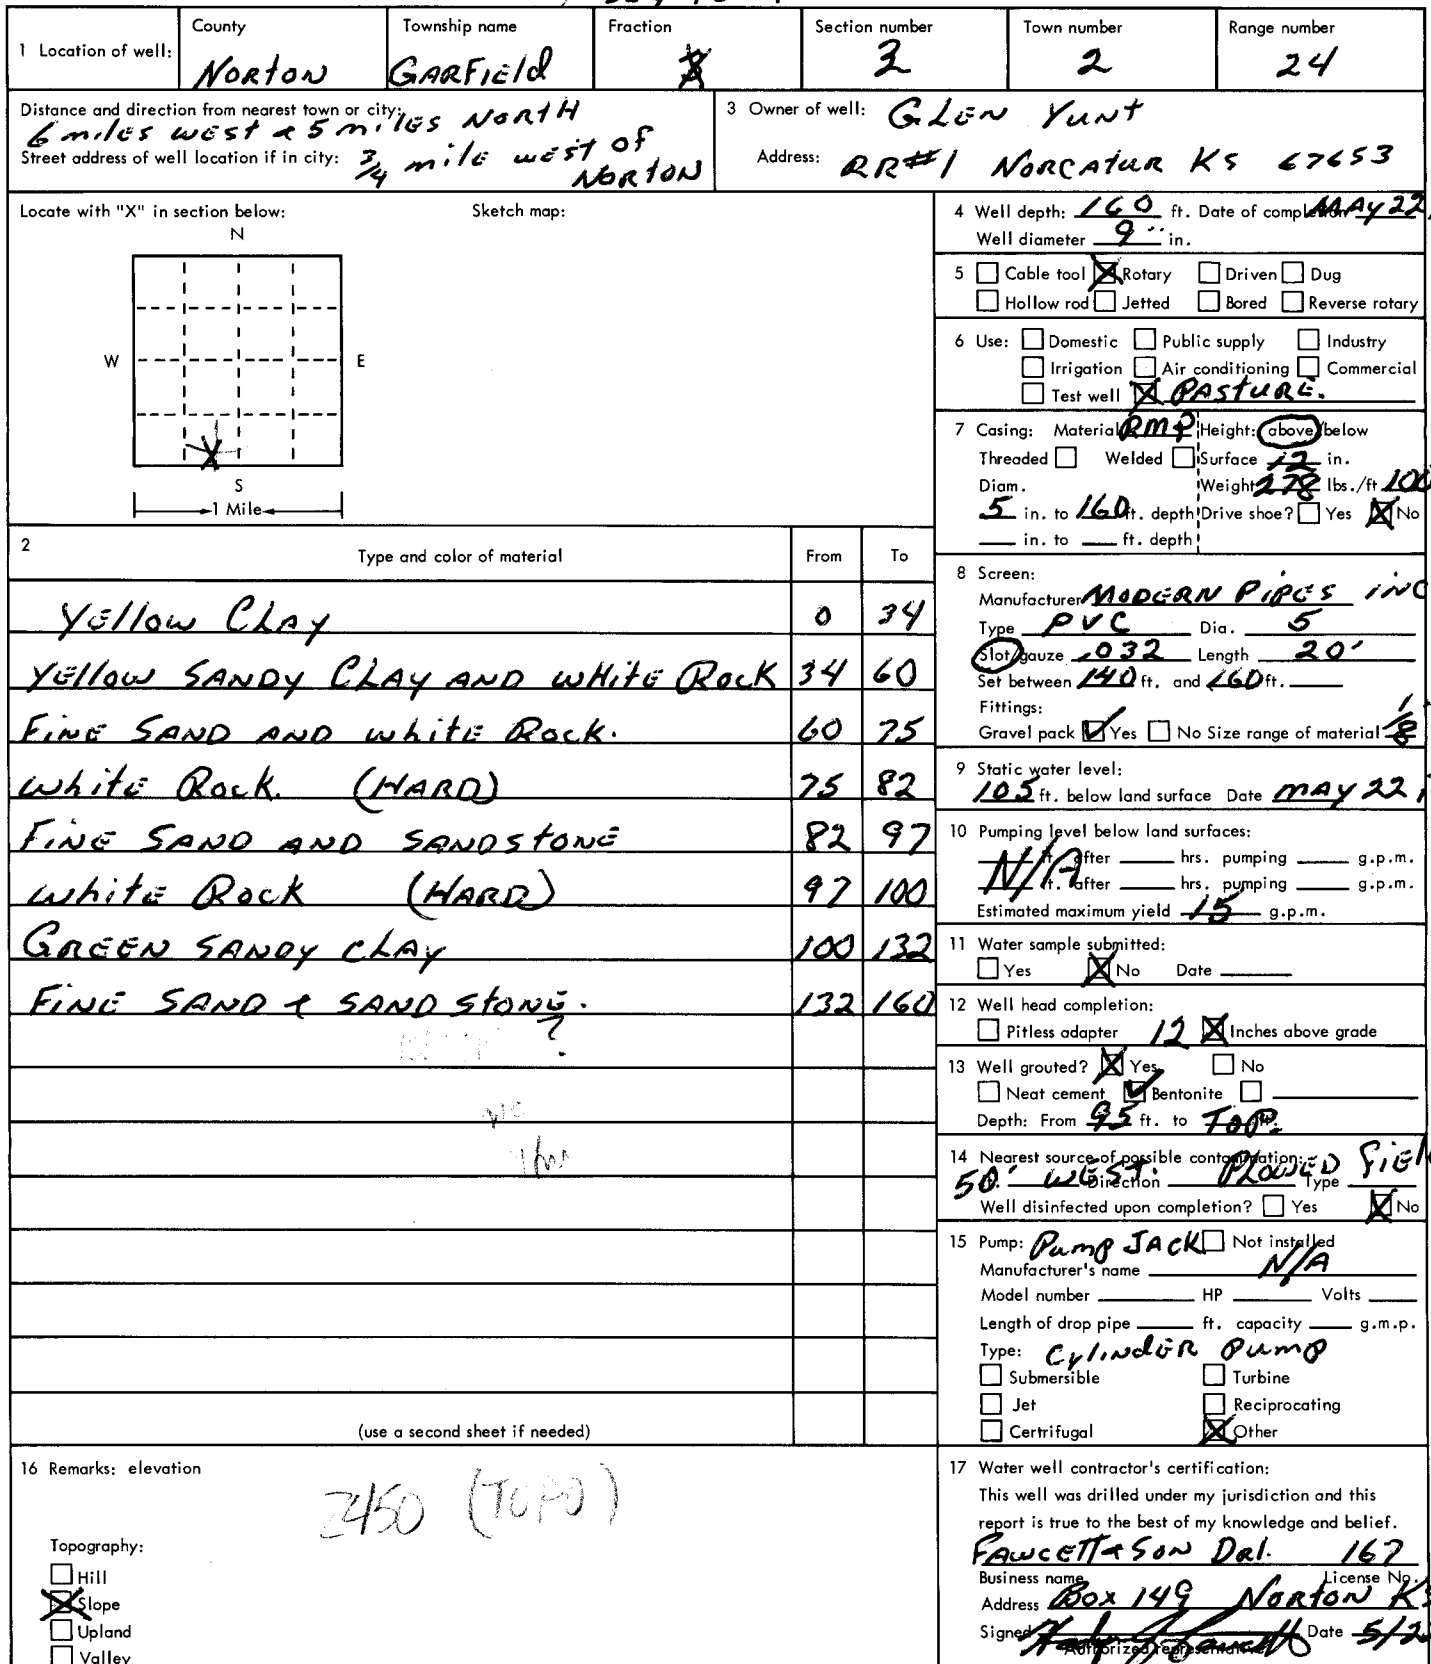 County Township name Fraction Section number Town number Range number
1 Location of well: Norton GARFiEld 2 24
Distance and direction from nearest town or city:
6 miles west & 5 miles North
Street address of well location if in city: 3/4 mile west of
NORTON
3 Owner of well: GLEN YUNT
Address: RR#1 NORCATUR KS 67653
Locate with "X" in section below: Sketch map:
N
W E
X
S
1 Mile
2 Type and color of material From To
Yellow Clay 0 34
Yellow SANDY CLAY AND WHITE Rock 34 60
FINE SAND AND white Rock. 60 75
White Rock. (HARD) 75 82
FINE SAND AND SANDSTONE 82 97
White Rock (HARD) 97 100
GREEN SANDY CLAY 100 132
FINE SAND & SANDSTONE. 132 160
?
(use a second sheet if needed)
4 Well depth: 160 ft. Date of completion MAY 22,
Well diameter 9" in.
5 Cable tool X Rotary Driven Dug
Hollow rod Jetted Bored Reverse rotary
6 Use: Domestic Public supply Industry
Irrigation Air conditioning Commercial
Test well X PASTURE.
7 Casing: Material RMP Height: above/below
Threaded Welded Surface 12 in.
Diam. Weight 278 lbs./ft 100
5 in. to 160 ft. depth Drive shoe? Yes X No
in. to ft. depth
8 Screen:
Manufacturer MODERN PIPES INC
Type PVC Dia. 5
Slot/gauze .032 Length 20'
Set between 140 ft. and 160 ft.
Fittings:
Gravel pack ✓ Yes No Size range of material 1/8
9 Static water level:
105 ft. below land surface Date MAY 22
10 Pumping level below land surfaces:
N/A ft. after hrs. pumping g.p.m.
ft. after hrs. pumping g.p.m.
Estimated maximum yield 15 g.p.m.
11 Water sample submitted:
Yes X No Date
12 Well head completion:
Pitless adapter 12 X Inches above grade
13 Well grouted? X Yes No
Neat cement ✓ Bentonite
Depth: From 95 ft. to TOP.
14 Nearest source of possible contamination:
50' WEST. Direction PLOWED FIEL Type
Well disinfected upon completion? Yes X No
15 Pump: Pump JACK Not installed
Manufacturer's name N/A
Model number HP Volts
Length of drop pipe ft. capacity g.m.p.
Type: Cylinder Pump
Submersible Turbine
Jet Reciprocating
Certrifugal X Other
16 Remarks: elevation
2450 (TOPO)
Topography:
Hill
X Slope
Upland
Valley
17 Water well contractor's certification:
This well was drilled under my jurisdiction and this
report is true to the best of my knowledge and belief.
FAWCETT & SON Drl. 167
Business name License No.
Address Box 149 NORTON KS
Signed Date 5/2
Authorized representative